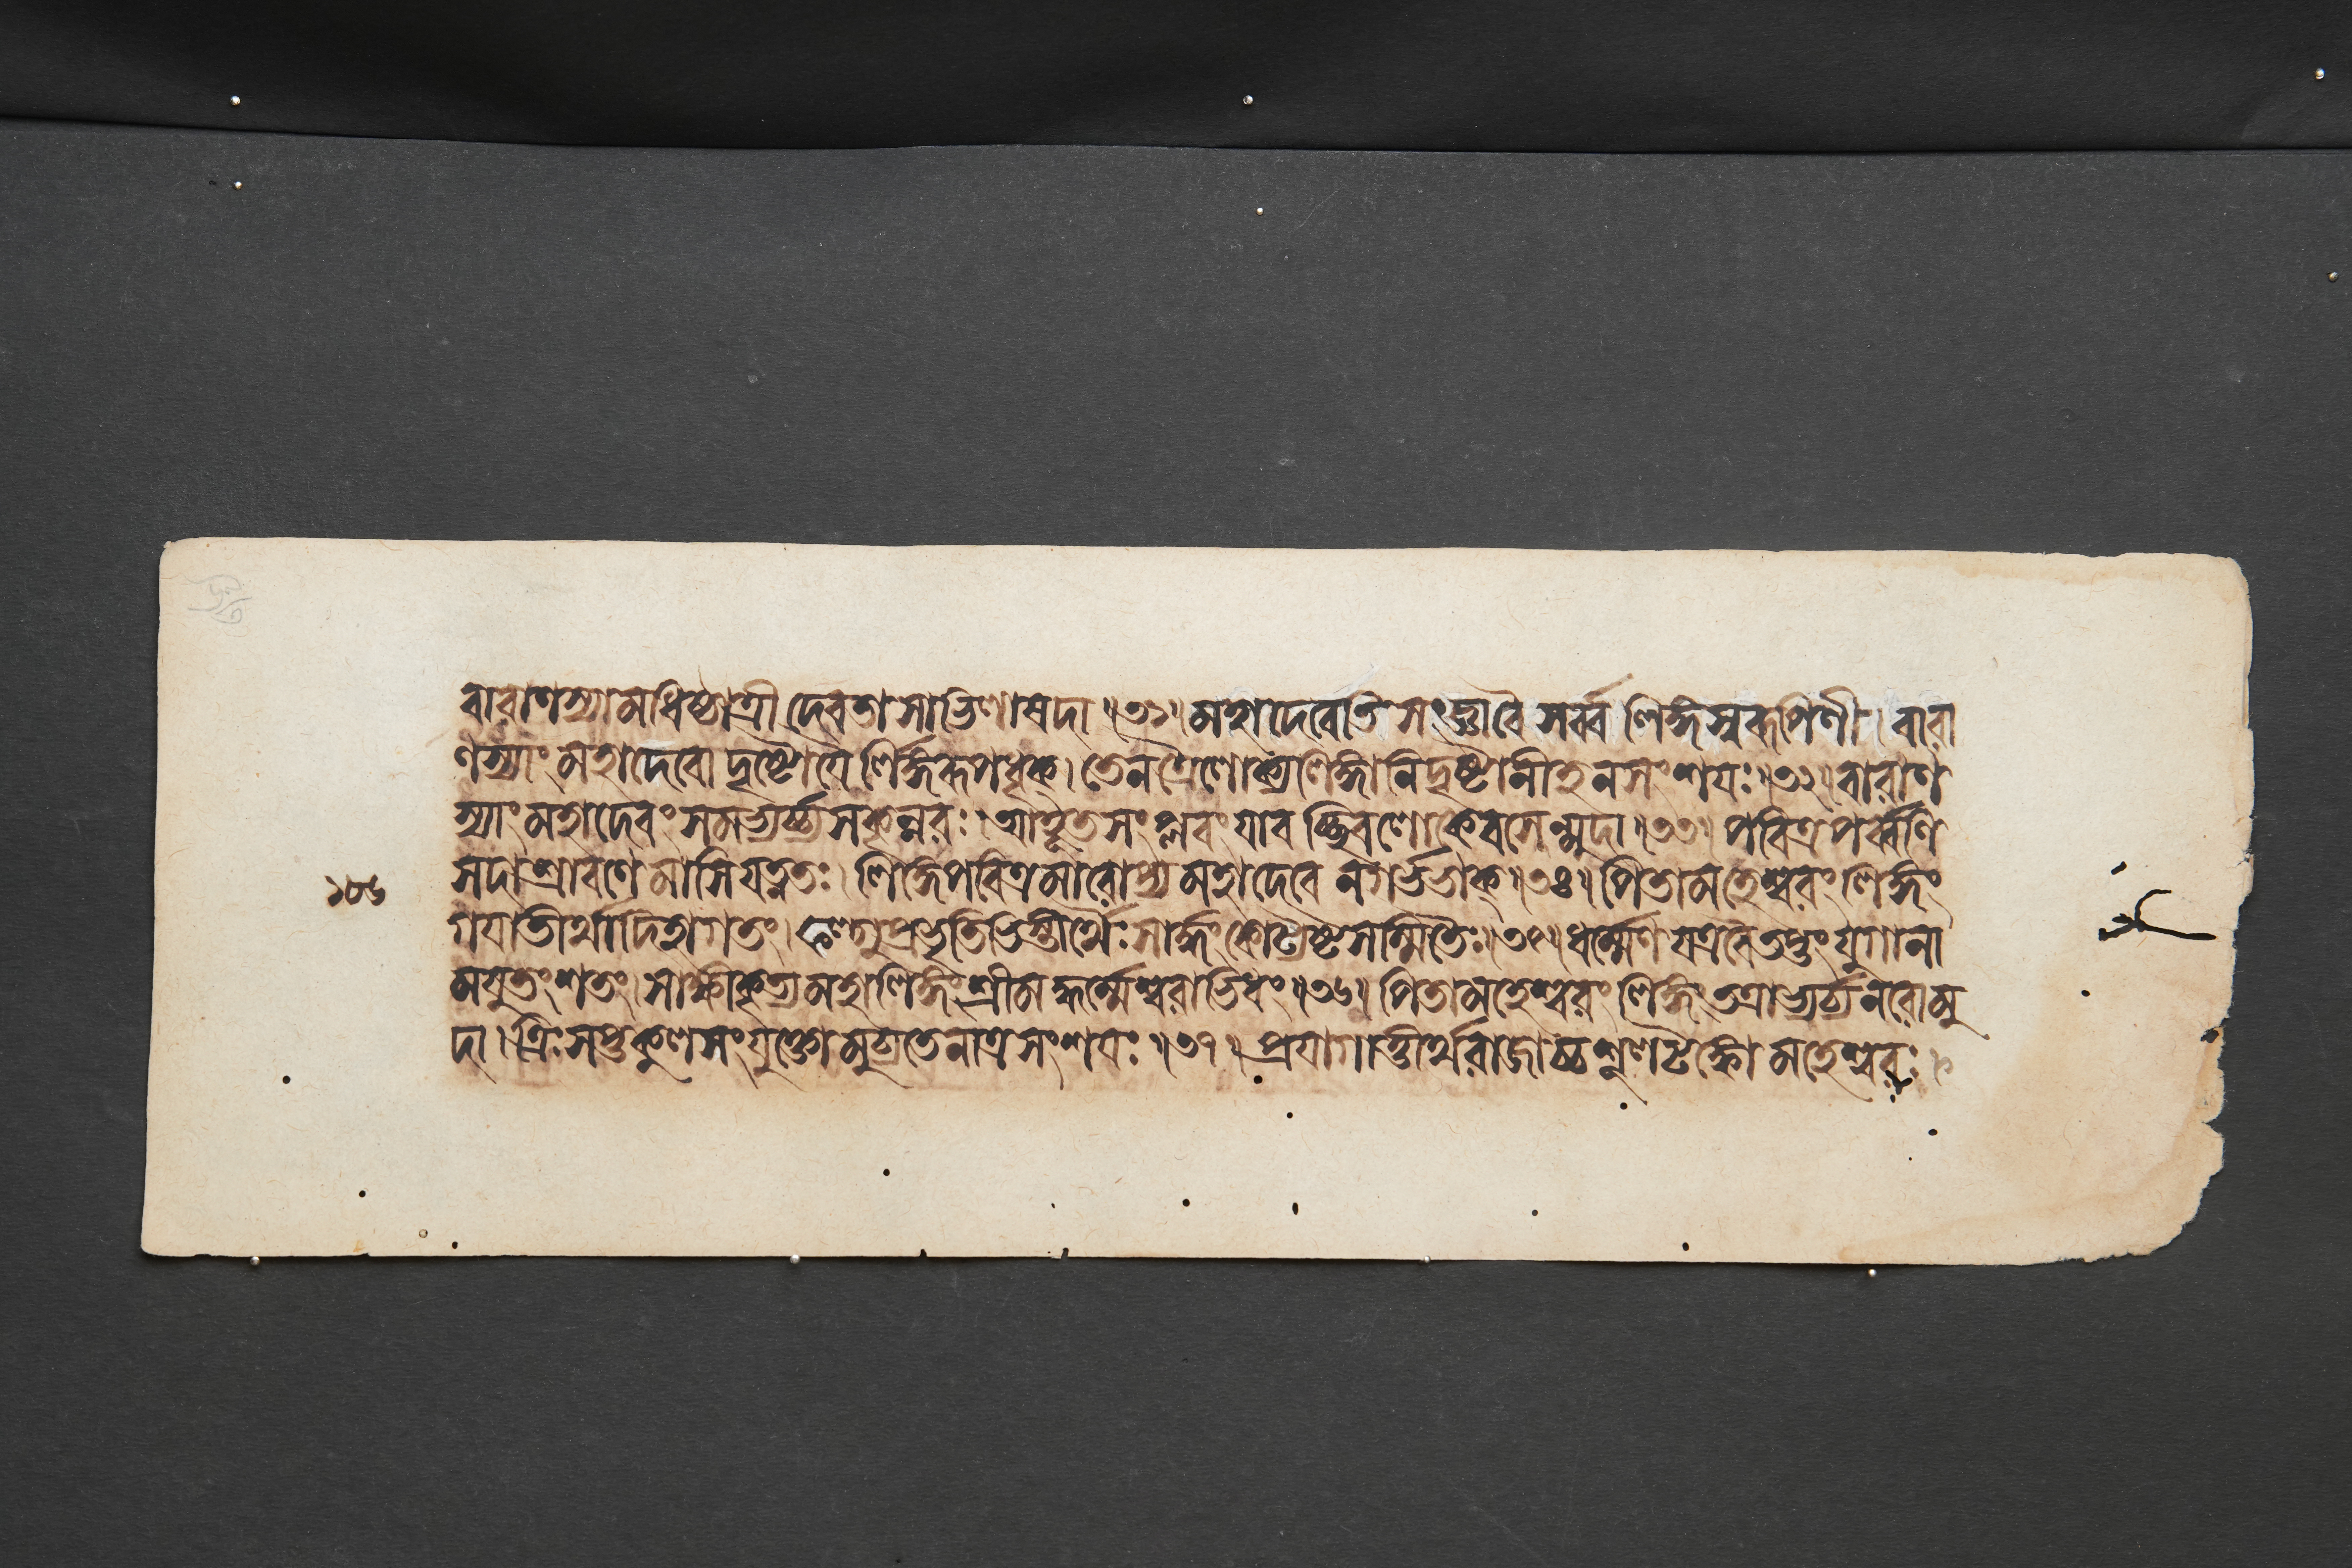 বারাণস্যামধিষ্ঠাত্রী দেবতা সাভিলাষদা ॥৩১॥ মহাদেবেতি সংজ্ঞাবৈ সর্ব্ব লিঙ্গস্বরূপিণী । বারা
ণস্যাং মহাদেবো দৃষ্টো যৈ র্লিঙ্গরূপধৃক্ । তেন ত্রৈলোক্যলিঙ্গানি দৃষ্টানীহ ন সংশযঃ ॥৩২॥ বারাণ
স্যাং মহাদেবং সমভ্যর্চ্চ্য সকৃন্নরঃ । আভূতসংপ্লবং যাব চ্ছিবলোকে বসেন্মুদা ॥৩৩॥ পবিত্রপর্ব্বণি
সদা শ্রাবণে মাসি যত্নতঃ । লিঙ্গে পবিত্রমারোপ্য মহাদেবে ন গর্ভভাক্ ॥৩৪॥ পিতামহেশ্বরং লিঙ্গং
গযাতীর্থাদিহাগতং । ফল্গুপ্রভৃতিভিস্তীর্থৈঃ সার্দ্ধং কোট্যষ্টসম্মিতৈঃ ॥৩৫॥ ধর্ম্মেণ যত্রবৈ তপ্তং যুগানা
মযুতং শতং । সাক্ষীকৃত্য মহালিঙ্গং শ্রীমদ্ধর্ম্মেশ্বরাভিধং ॥৩৬॥ পিতামহেশ্বরং লিঙ্গং তত্রাভ্যর্চ্য নরো মু
দা । ত্রিঃসপ্তকুলসংযুক্তো মুচ্যতে নাত্র সংশযঃ ॥৩৭॥ প্রযাগাত্তীর্থরাজাচ্চ শূলটঙ্কো মহেশ্বরঃ ।
১৮৬